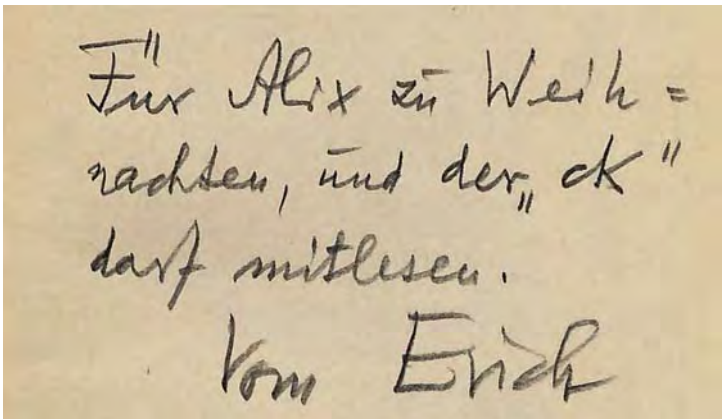 Für Alix zu Weih=
nachten, und der „ck"
darf mitlesen.
Vom Erich